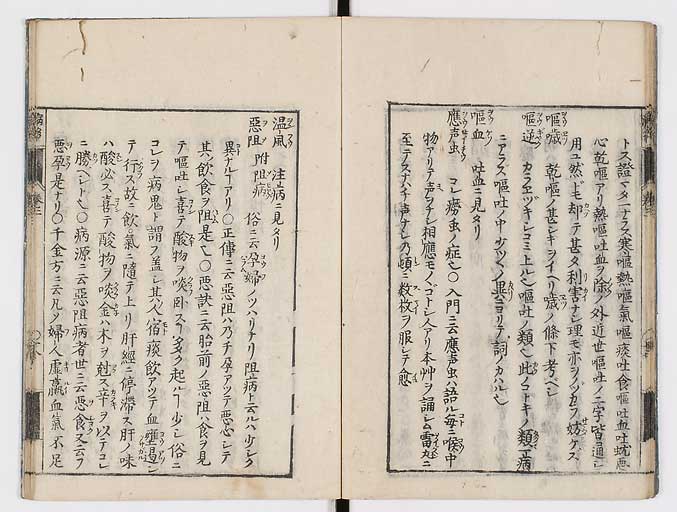 トス證マタ一ナラス寒嘔熱嘔氣嘔痰吐食嘔吐血吐蚘悪
心乾嘔アリ熱嘔吐血ヲ除ノ外近世嘔吐ノ二字皆通シ
用ユ然ドモ却テ甚タ利害ナシ理モ亦ヲノツカラ妨ケス
嘔噦 乾嘔ノ甚シキヲイヘリ噦ノ條下考ヘシ
嘔逆 カラエツキシコミ上ル〻嘔吐ノ類〻此ウトキノ類
ニアラス嘔吐ノ中少ツヽノ異合リテ詞ノカハル〻
嘔血 吐血ニ見タリ
應声虫 コレ癆虫ノ症〻〇入門ニ云應声虫ハ語ル毎ニ喉中
物アリテ声ヲナシ相應モノゴトシ人アリ本艸ヲ誦シ雷丸ニ
至テス六ヘキ声ナシ乃頓ニ数枚ヲ服シテ愈
温風 注病ニ見タリ
惡阻 附阻病 俗ニ云孕婦ノツハリナリ阻病ト云ルハ少シク
異ナルアリ〇正傳ニ云惡阻ハ乃チ孕アツテ悪心シテ
其飲食ヲ阻是〻〇悪訣ニ云胎前ノ惡阻ハ食ヲ見
テ嘔吐シ喜テ酸物ヲ啖臥スヿ多ク起ルヿ少シ俗ニ
コレヲ病鬼ト謂フ蓋シ其人宿痰飲アツテ血壅遏シ
テ行ス故ニ飲氣ニ隨テ上リ肝経ニ停滞ス肝ノ味
ハ酸必ス喜テ酸物ヲ啖金ハ木ヲ尅ス辛ヲ以テコレ
ニ勝ヘシト〻〇病源ニ云惡阻病者世ニ云悪食又云フ
悪孕是ナリ〇千金方ニ云凡ノ婦人虚羸血氣不足